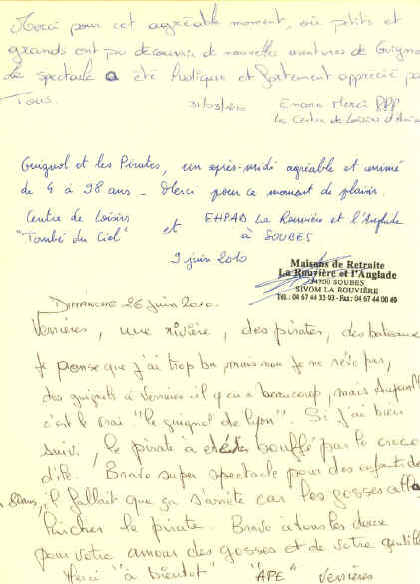 Merci pour cet agréable moment, où petits et
grands ont pu découvrir de nouvelles aventures de Guignol
Le spectacle a été ludique et fortement apprécié pa
Tous.
31/03/2010 Emaon Merci
Le Centre de Loisirs
Guignol et les Pirates, un après-midi agréable et animé
de 4 à 98 ans - Merci pour ce moment de plaisir.
Centre de Loisirs et EHPAD La Rouvière et l'Anglade
"Tombé du Ciel" à SOUBES
9 juin 2010
Maisons de Retraite
La Rouvière et l'Anglade
34700 SOUBES
SIVOM LA ROUVIÈRE
Tél.: 04 67 44 33 93 - Fax: 04 67 44 00 69
Dimanche 26 juin 2010.
Verrières, une rivière, des pirates, des bateaux
Je pense que j'ai trop bu, mais non je ne rêve pas,
des guignols à Verrières il y en a beaucoup, mais
c'est le vrai "le guignol de lyon". Si j'ai bien
suivi, le pirate à été bouffé par le croco
dile. Bravo super spectacle pour des enfants de
ans, il fallait que ça s'arrête car les gosses
le pirate. Bravo à tous les deux
pour votre amour des gosses et de votre gentil
Merci "à bientôt" "APE" Verrières